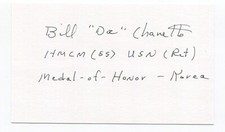 Bill "Doc" Charette
HMCM (SS) USN (Ret)
Medal-of-Honor - Korea